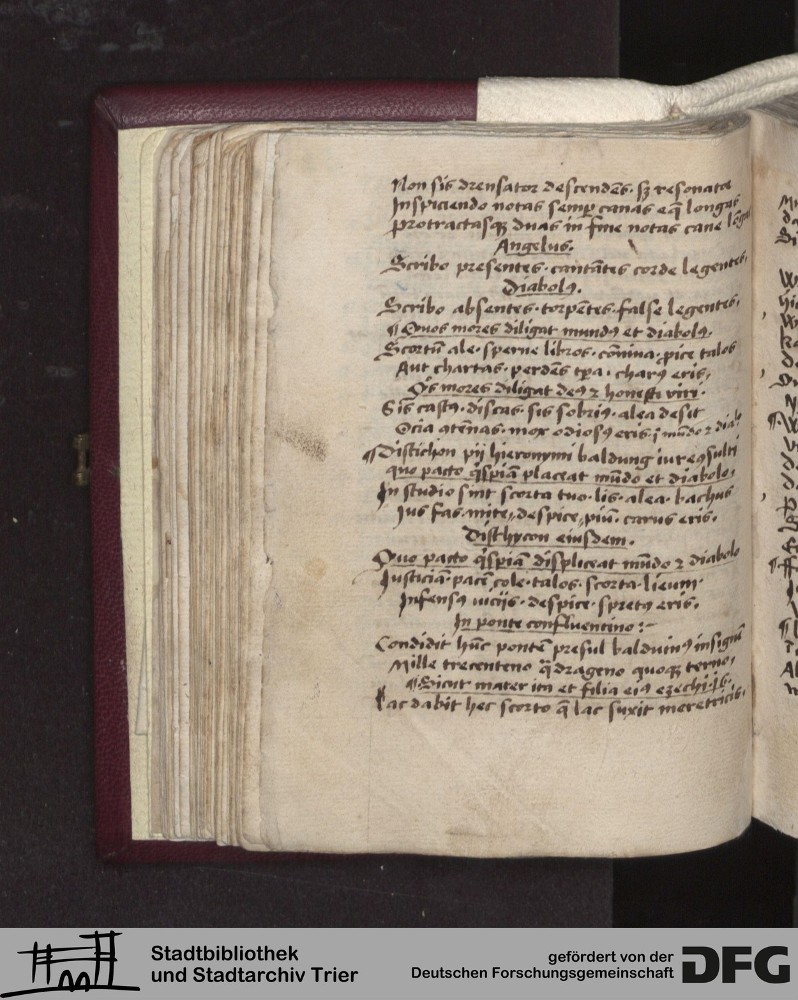 Non sis drensator descendēs· sꝫ resonata
Inspiciendo notas semꝑ canas eq̄ longas
Protractasqꝫ duas in fine notas cane
Angelus.
Scribo presentes· cantātes corde legentes,
Diabolꝰ.
Scribo absentes· torpētes· false legentes,
¶ Quos mores diligat mundꝰ et diabolꝰ.
Scortū ale· sperne libros· cōniva· pice talos
Aut chartas· perdēs tꝑa· charꝰ eris,
Qis mores diligat deꝰ ⁊ honesti viri·
Sis castꝰ· discas· sis sobriꝰ· alea desit
Ocia· mox odiosꝰ eris· mūdo ⁊ diab
¶ Distichon pij hieronymi baldung iurecꝰsulti
quo pacto q̄spiā placeat mūdo et diabolo.
In studio sint scorta tuo· lis· alea· bachus
Ius fas· mite, despice, piū· carus eris.
Disthycon eiusdem.
Quo pacto q̄spiā displiceat mūdo ⁊ diabolo
Iusticiā· pacē, cole· talos· scorta· lieum·
Infensꝰ vicijs· despice· spretꝰ eris.
In ponte confluentino:~
Condidit hūc pontē presul balduinꝰ insignē
Mille trecenteno q̄drageno quoqꝫ terno,
¶ Sicut mater ita et filia eiꝰ ezechi· 16.
Lac dabit hec scorto q̄ lac suxit meretricis.
Stadtbibliothek
und Stadtarchiv Trier
gefördert von der
Deutschen Forschungsgemeinschaft
DFG